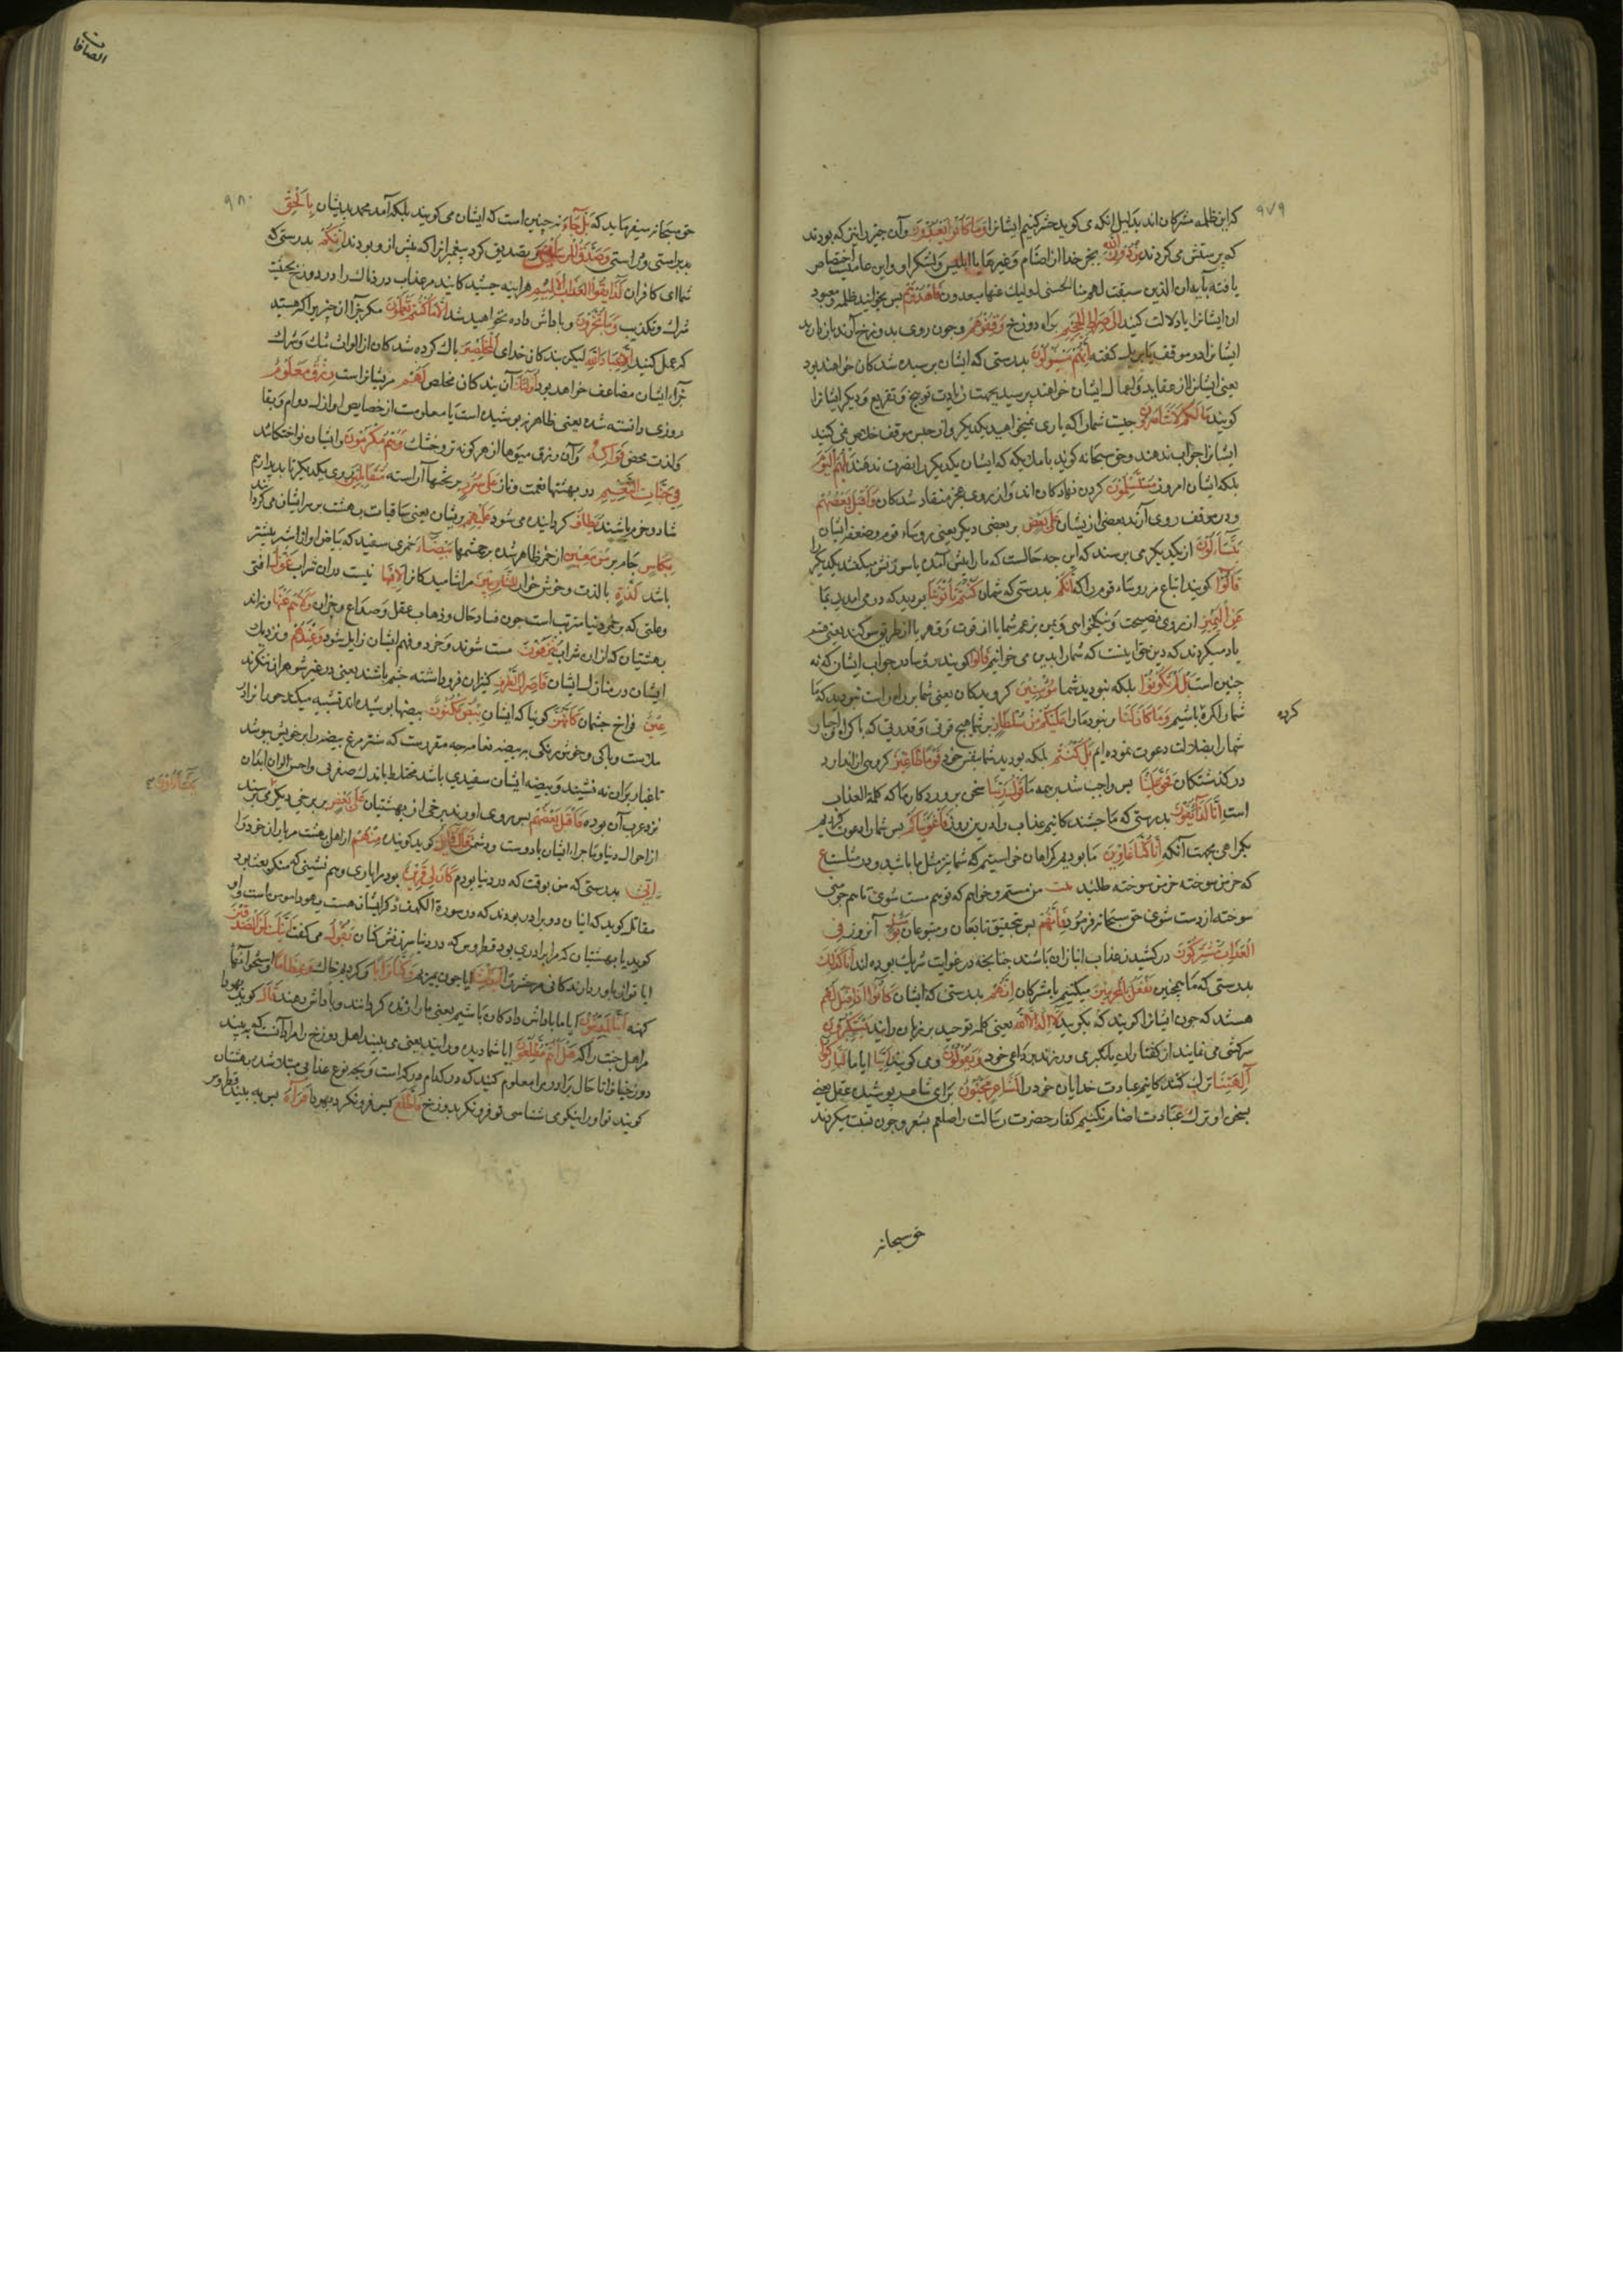 ۹۷۹
که این ظلمه مشرکان اند بدلیل انکه می کوید حشر کنیم ایشانرا وَمَا كَانُوا يَعْبُدُونَ وآن چیزرا نیز که بودند
که پرستش می کردند مِنْ دُونِ اللّٰهِ بجز خدا از اصنام وغیرها یا ابلیس ولشکر او واین عامیست اختصاص
یافته بآیه ان الذین سبقت لهم منا الحسنی اولیک عنها مبعدون فَاهْدُوهُمْ پس بخوانید ظلمه ومعبود
ان ایشانرا یا دلالت کنید اِلَى صِرَاطِ الْجَحِيمِ براه دوزخ وَقِفُوهُمْ وچون روی بدوزخ آرند باز دارید
ایشانرا در موقف کفته اِنَّهُمْ مَسْئُولُونَ بدرستی که ایشان پرسیده شدکان خواهند بود
یعنی ایشانرا از عقاید واعمال ایشان خواهند پرسید بجهت زیادت توبیخ وتقریع ودیکر ایشانرا
کویند مَا لَكُمْ لَا تَنَاصَرُونَ چیست شمارا که یاری نمیخواهید یکدیکر واز حبس موقف خلاص نمی کنید
ایشانرا جواب ندهند وحق سبحانه کوید با ملایکه که ایشان یکدیکر را نصرت ندهند بَلْ هُمُ الْيَوْمَ
بلکه ایشان امروز مُسْتَسْلِمُونَ کردن نهادکان اند واز روی عجز منقاد شدکان وَاَقْبَلَ بَعْضُهُمْ
ودر موقف روی آرند بعضی از ایشان عَلَى بَعْضٍ بر بعضی دیکر یعنی روساء قوم وضعفا ایشان
يَتَسَاءَلُونَ از یکدیکر می پرسند که این چه حالست که مارا پیش آمده یا سرزنش میکنند یکدیکر را
قَالُوا کویند اتباع مر روساء قوم را که اِنَّكُمْ بدرستی که شما كُنْتُمْ تَأْتُونَنَا بودید که در می امدید بما
عَنِ الْيَمِينِ از روی نصیحت ونیکخواهی ویمن بزعم شما یا از قوت وقهر یا از طریق سوکند یعنی قسم
یاد میکردند که دین حق اینست که شمارا بدین می خوانیم قَالُوا کویند روسا در جواب ایشان که نه
چنین است بَلْ لَمْ تَكُونُوا بلکه نبودید شما مُؤْمِنِينَ کرویدکان یعنی شما بر راه راست نبودید که ما
شمارا کمره باشیم وَمَا كَانَ لَنَا ونبود مارا عَلَيْكُمْ مِنْ سُلْطَانٍ بر شما هیچ قوتی وقدرتی که باکراه واجبار
کرده
شمارا بضلالت دعوت نموده ایم بَلْ كُنْتُمْ بلکه بودید شما بنفس خود قَوْمًا طَاغِينَ کروهی از اندازه
در کذشتکان فَحَقَّ عَلَيْنَا پس واجب شد بر همه ما قَوْلُ رَبِّنَا سخن پروردکار ما که کلمة العذاب
است اِنَّا لَذَائِقُونَ بدرستی که ما چشندکانیم عذاب را درین روز فَاَغْوَيْنَاكُمْ پس شمارا دعوت کردیم
بکمراهی بجهت آنکه اِنَّا كُنَّا غَاوِينَ ما بودیم کمراهان خواستیم که شما نیز مثل ما باشید
که خرمن سوخته خرمن سوخته طلبد بیت من مستم وخواهم که تو هم مست شوی تا هم چو منی
سوخته از دست شوی حق سبحانه فرمود فَاِنَّهُمْ پس بتحقیق تابعان ومتبوعان يَوْمَئِذٍ آنروز فِي
الْعَذَابِ مُشْتَرِكُونَ در کشیدن عذاب انبازان باشند چنانچه در غوایت شریک بوده اند اِنَّا كَذَلِكَ
بدرستی که ما همچنین نَفْعَلُ بِالْمُجْرِمِينَ میکنیم با مشرکان اِنَّهُمْ بدرستی که ایشان كَانُوا اِذَا قِيلَ لَهُمْ
هستند که چون ایشانرا کویند که بکویید لَا اِلٰهَ اِلَّا اللّٰهُ یعنی کلمه توحید بر زبان رانید يَسْتَكْبِرُونَ
سرکشی می نمایند از کفتار ان وَيَقُولُونَ ومی کویند اَئِنَّا ایا ما لَتَارِكُوا
آلِهَتِنَا ترک کنندکانیم عبادت خدایان خود را لِشَاعِرٍ مَجْنُونٍ برای شاعر پوشیده عقل یعنی
بسخن او ترک عبادت اصنام نکنیم کفار حضرت رسالت را صلعم بشعر وجنون نسبت میکردند
حق سبحانه
الصافات
۹۸۰
حق سبحانه میفرماید که بَلْ جَاءَ نه چنین است که ایشان می کویند بلکه آمد محمد بدیشان بِالْحَقِّ
براستی ودرستی وَصَدَّقَ الْمُرْسَلِينَ وتصدیق کرد پیغمبرانرا که پیش از و بودند اِنَّكُمْ بدرستی که
شما ای کافران لَذَائِقُوا الْعَذَابِ الْاَلِيمِ هراینه چشندکانید مر عذاب دردناک را در دوزخ بجهت
شرک وتکذیب وَمَا تُجْزَوْنَ وپاداش داده نخواهید شد اِلَّا مَا كُنْتُمْ تَعْمَلُونَ مکر جزا آن چیزی را که هستید
که عمل کنید اِلَّا عِبَادَ اللّٰهِ لیکن بندکان خدای الْمُخْلَصِينَ پاک کرده شدکان از الواث شک وشرک
جزاء ایشان مضاعف خواهد بود اُولَئِكَ آن بندکان مخلص لَهُمْ مر ایشانراست رِزْقٌ مَعْلُومٌ
روزی دانسته شده یعنی ظاهر نه پوشیده است یا معلومست از خصایص او از دوام وبقا
ولذت محض فَوَاكِهُ وآن رزق میوها از هر کونه تر وخشک وَهُمْ مُكْرَمُونَ وایشان نواختکانند
فِي جَنَّاتِ النَّعِيمِ در بهشتها نعمت وناز عَلَى سُرُرٍ بر تختها آراسته مُتَقَابِلِينَ روی بیکدیکر تا بدیدار هم
شاد وخرم باشند يُطَافُ کردانیده می شود عَلَيْهِمْ بریشان یعنی ساقیان بهشت بر سر ایشان می کردانند
بِكَأْسٍ جام پر مِنْ مَعِينٍ از خمر ظاهر شده بر چشمها بَيْضَاءَ خمری سفید که بیاض او از شیر بیشتر
باشد لَذَّةٍ بالذت وخوش خوار لِلشَّارِبِينَ مر اشامیدکانرا لَا فِيهَا نیست دران شراب غَوْلٌ افتی
وعلتی که بر خمر دنیا مترتب است چون فساد حال وذهاب عقل وصداع وخمار وَلَا هُمْ عَنْهَا ونه اند
بهشتیان که ازان شراب يُنْزَفُونَ مست شوند وخرد وفهم ایشان زایل شود وَعِنْدَهُمْ ونزدیک
ایشان در منازل ایشان قَاصِرَاتُ الطَّرْفِ کنیزان فرو داشته چشم باشند یعنی در غیر شوهران ننکرند
عِينٌ فراخ چشمان كَاَنَّهُنَّ کوییا که ایشان بَيْضٌ مَكْنُونٌ بیضها پوشیده اند تشبیه میکند حورانرا در
ملاست وپاکی وخوش رنکی به بیضه نعامه چه مقررست که شتر مرغ بیضه را بپر خویش بپوشد
تا غبار بران نه نشیند وبیضه ایشان سفیدی باشد مختلط باندک صفرتی واحسن الوان ابدان
يَتَسَاءَلُونَ
نزد عرب آن بوده فَاَقْبَلَ بَعْضُهُمْ پس روی اورند برخی از بهشتیان عَلَى بَعْضٍ بر برخی دیکر می پرسند
از احوال دنیا وماجراء ایشان با دوست ودشمن قَالَ قَائِلٌ کوید کوینده مِنْهُمْ از اهل بهشت مر یاران خود را
اِنِّي بدرستی که من بوقت که در دنیا بودم كَانَ لِي قَرِينٌ بود مرا یاری وهم نشینی که منکر بعث بود
مقاتل کوید که اینان دو برادر بودند که در سورة الکهف ذکر ایشان هست یهودا مومن است و او
کوید با بهشتیان که مرا برادری بود قطروس که در دنیا سرزنش کنان يَقُولُ می کفت اَئِنَّكَ لَمِنَ الْمُصَدِّقِينَ
ایا تو از باوردارندکانی مر حشر را اَئِذَا مِتْنَا ایا چون بمیریم وَكُنَّا تُرَابًا وکردیم خاک وَعِظَامًا واستخوانها
کهنه اَئِنَّا لَمَدِينُونَ ایا ما پاداش دادکان باشیم یعنی مارا زنده کردانند وپاداش دهند قَالَ کوید یهودا
مر اهل جنت را که هَلْ اَنْتُمْ مُطَّلِعُونَ ایا شما دیده ورانید یعنی می بینید اهل دوزخ را مراد آنست که ببینید
دوزخیانرا تا حال برادر مرا معلوم کنید که در کدام درکه است وبچه نوع عذابی مبتلا شد بهشتیان
کویند تو اورا نیکو می شناسی تو فرونکر بدوزخ فَاطَّلَعَ پس فرونکرد یهودا فَرَآهُ پس به بیند قطروس را